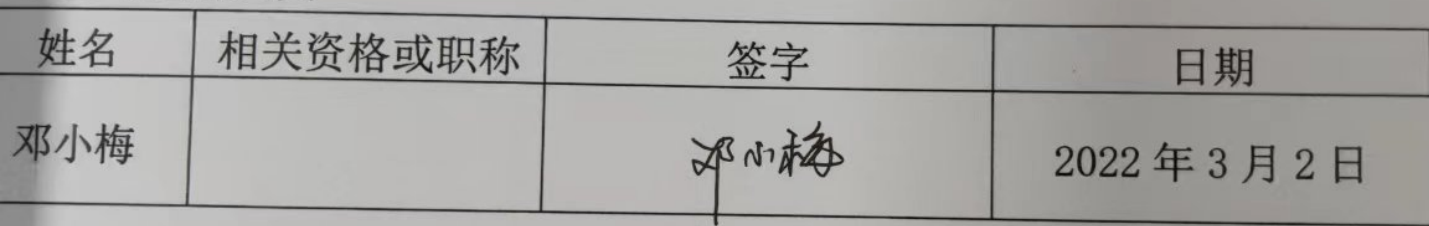 姓名 相关资格或职称 签字 日期
邓小梅 邓小梅 2022年3月2日